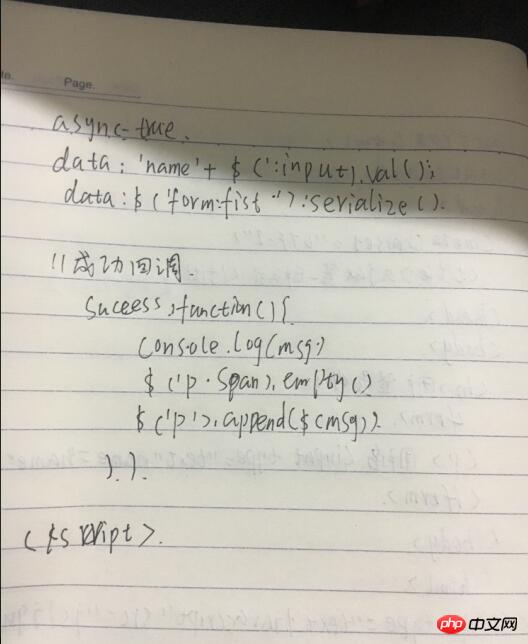 te.
Page.
async=true.
data: 'name'+ $ (':input).val();
data:$ ('form:fist ').serialize().
//成功回调.
Sucess:function(){
Console.log(msg)
$ ('p . Span).empty()
$ ('p').append($(msg)).
}).
</script>.
php 中文网